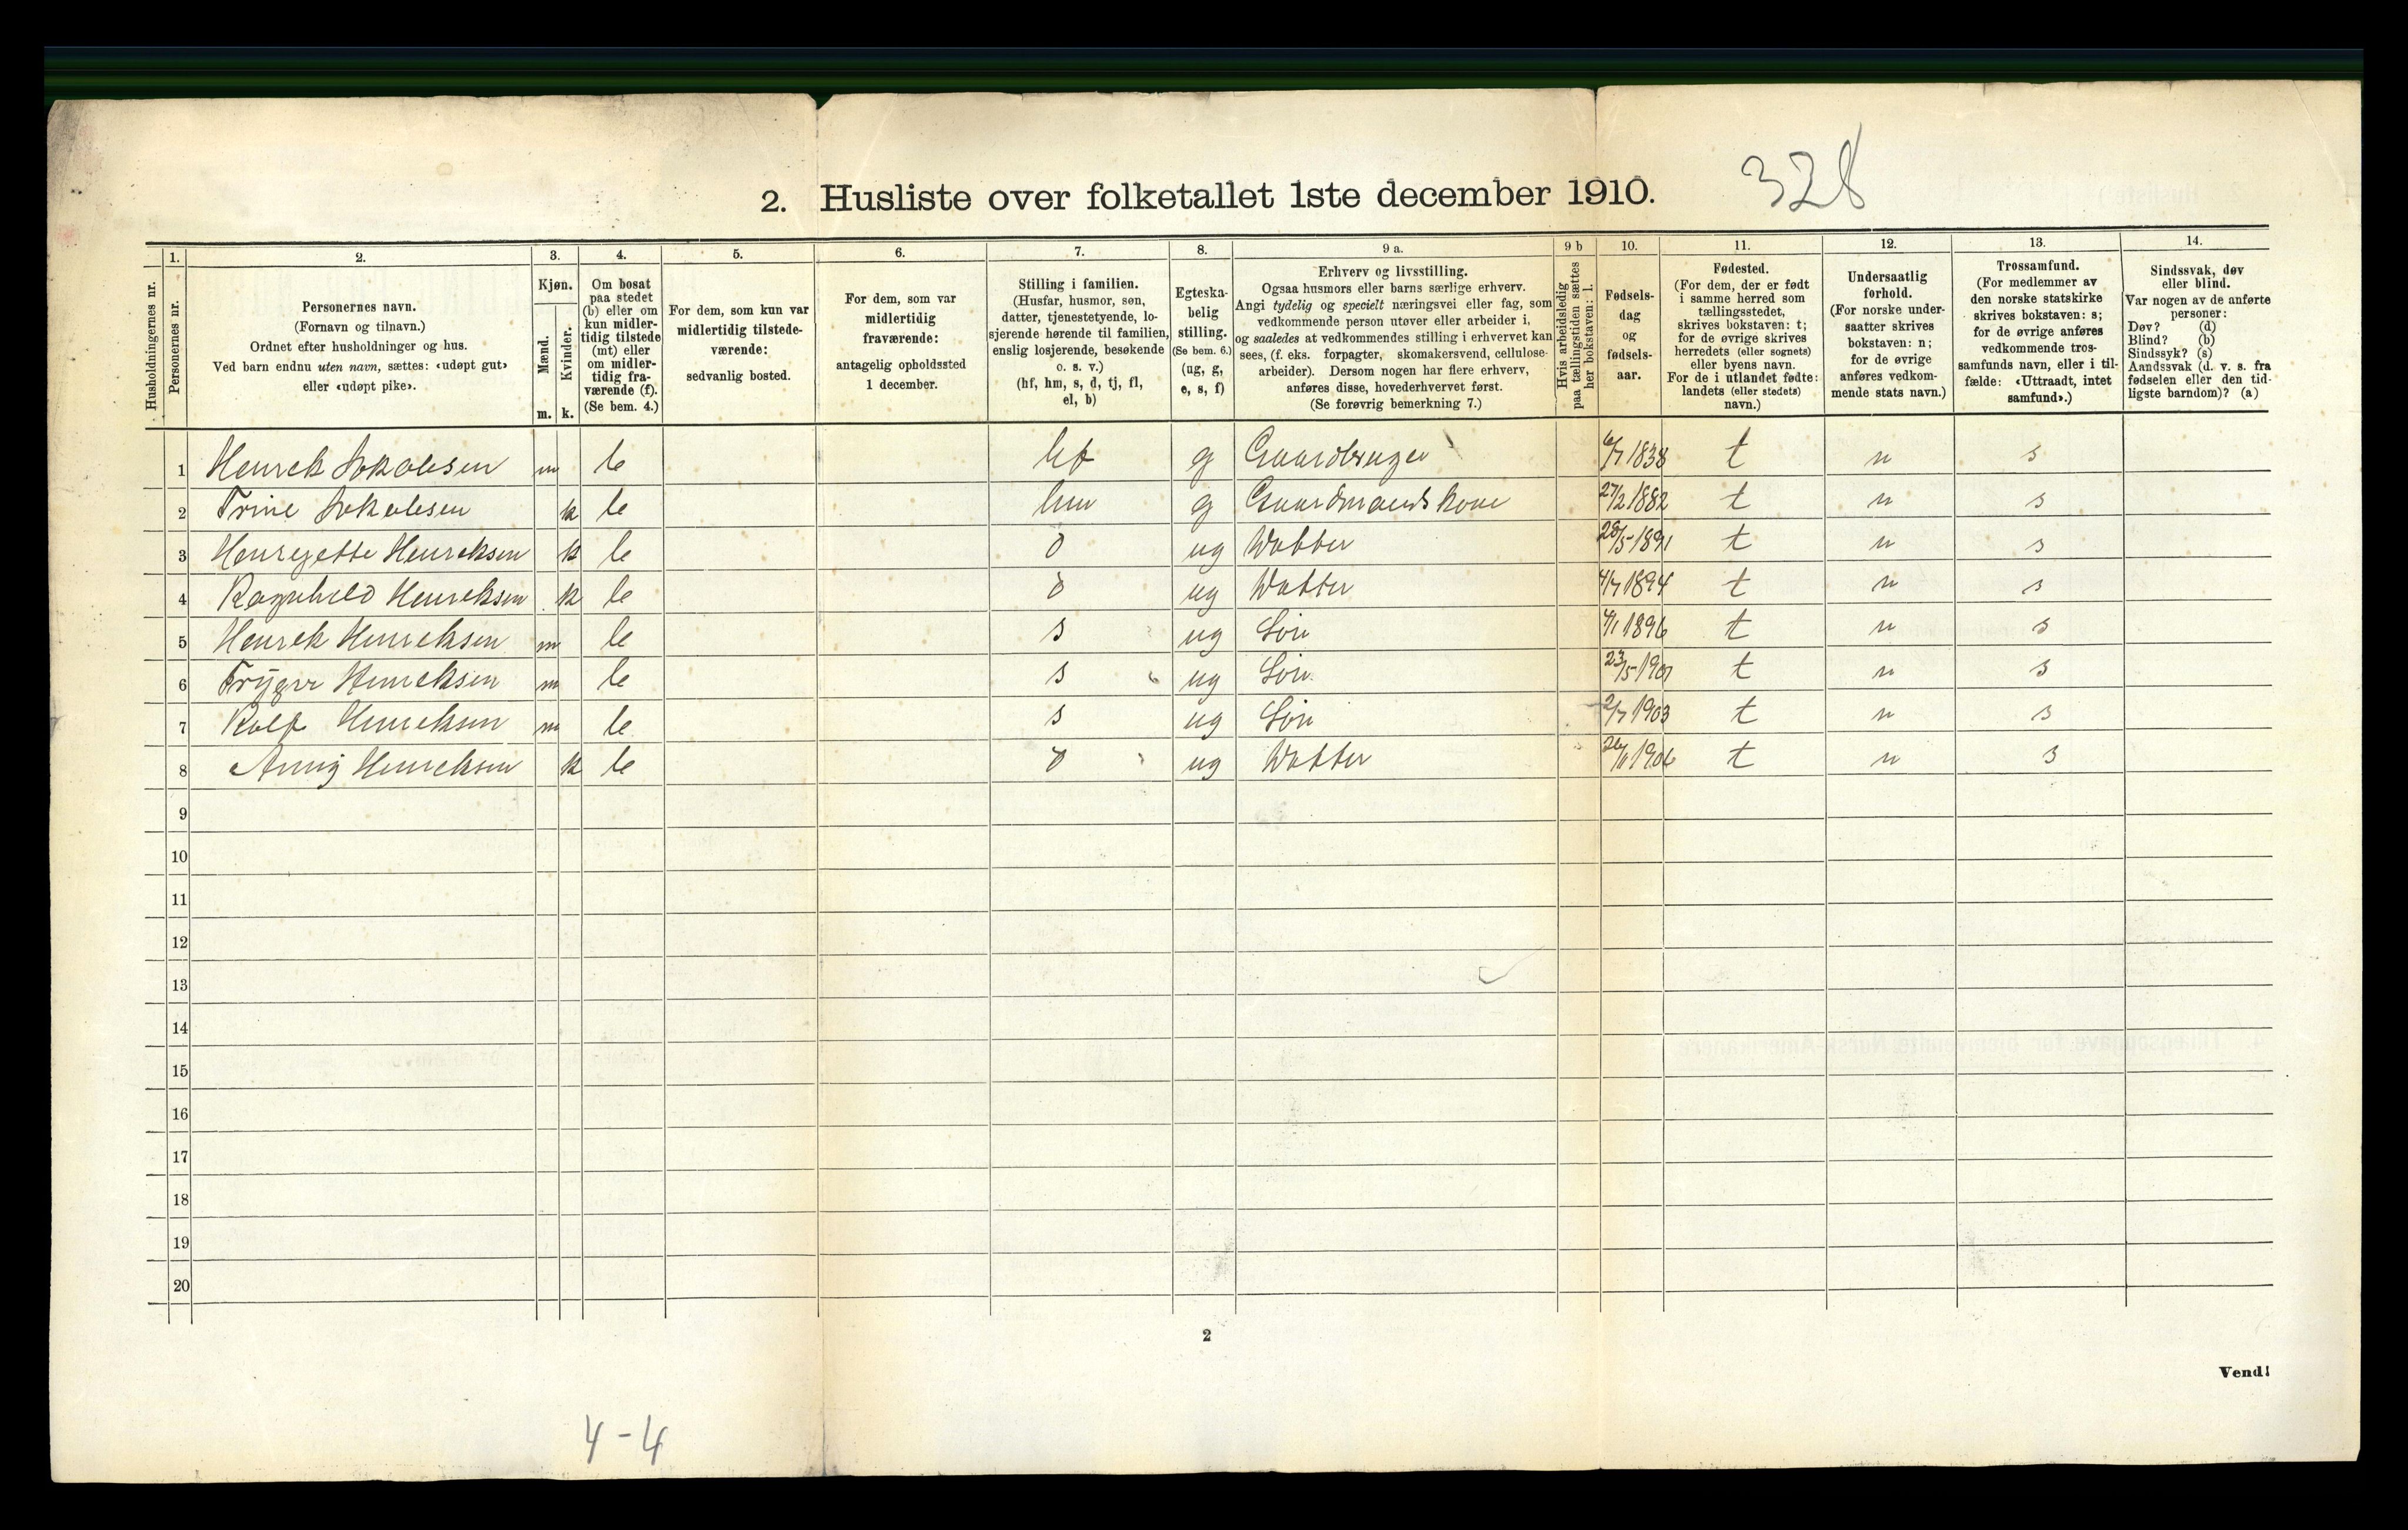 2. Husliste over folketallet 1ste december 1910. 328
Husholdningernes nr.
1. Personernes nr.
2. Personernes navn. (Fornavn og tilnavn.) Ordnet efter husholdninger og hus. Ved barn endnu uten navn, sættes: «udøpt gut» eller «udøpt pike».
3. Kjøn. Mænd. m. Kvinder. k.
4. Om bosat paa stedet (b) eller om kun midlertidig tilstede (mt) eller om midlertidig fraværende (f). (Se bem. 4.)
5. For dem, som kun var midlertidig tilstedeværende: sedvanlig bosted.
6. For dem, som var midlertidig fraværende: antagelig opholdssted 1 december.
7. Stilling i familien. (Husfar, husmor, søn, datter, tjenestetyende, losjerende hørende til familien, enslig losjerende, besøkende o. s. v.) (hf, hm, s, d, tj, fl, el, b)
8. Egteskabelig stilling. (Se bem. 6.) (ug, g, e, s, f)
9 a. Erhverv og livsstilling. Ogsaa husmors eller barns særlige erhverv. Angi tydelig og specielt næringsvei eller fag, som vedkommende person utøver eller arbeider i, og saaledes at vedkommendes stilling i erhvervet kan sees, (f. eks. forpagter, skomakersvend, cellulosearbeider). Dersom nogen har flere erhverv, anføres disse, hovederhvervet først. (Se forøvrig bemerkning 7.)
9 b Hvis arbeidsledig paa tællingstiden sættes her bokstaven: l.
10. Fødselsdag og fødselsaar.
11. Fødested. (For dem, der er født i samme herred som tællingsstedet, skrives bokstaven: t; for de øvrige skrives herredets (eller sognets) eller byens navn. For de i utlandet fødte: landets (eller stedets) navn.)
12. Undersaatlig forhold. (For norske undersaatter skrives bokstaven: n; for de øvrige anføres vedkommende stats navn.)
13. Trossamfund. (For medlemmer av den norske statskirke skrives bokstaven: s; for de øvrige anføres vedkommende trossamfunds navn, eller i tilfælde: «Uttraadt, intet samfund».)
14. Sindssvak, døv eller blind. Var nogen av de anførte personer: Døv? (d) Blind? (b) Sindssyk? (s) Aandssvak (d. v. s. fra fødselen eller den tidligste barndom)? (a)
1 Henrek m b hf g Gaardbruger 1838 t n s
2 Trine k b hm g Gaardmands kone 27/2 1882 t n s
3 Henregette Henreksen k b d ug Datter 28/5 1891 t n s
4 Ragnhild Henreksen k b d ug Datter 4/7 1894 t n s
5 Henrek Henreksen m b s ug Søn 4/1 1896 t n s
6 Trÿgve Henreksen m b s ug Søn 23/5 1901 t n s
7 Rolf Henreksen m b s ug Søn 2/7 1903 t n s
8 Annÿ Henreksen k b d ug Datter 26/11 1906 t n s
9
10
11
12
13
14
15
16
17
18
19
20
2
Vend!
4-4